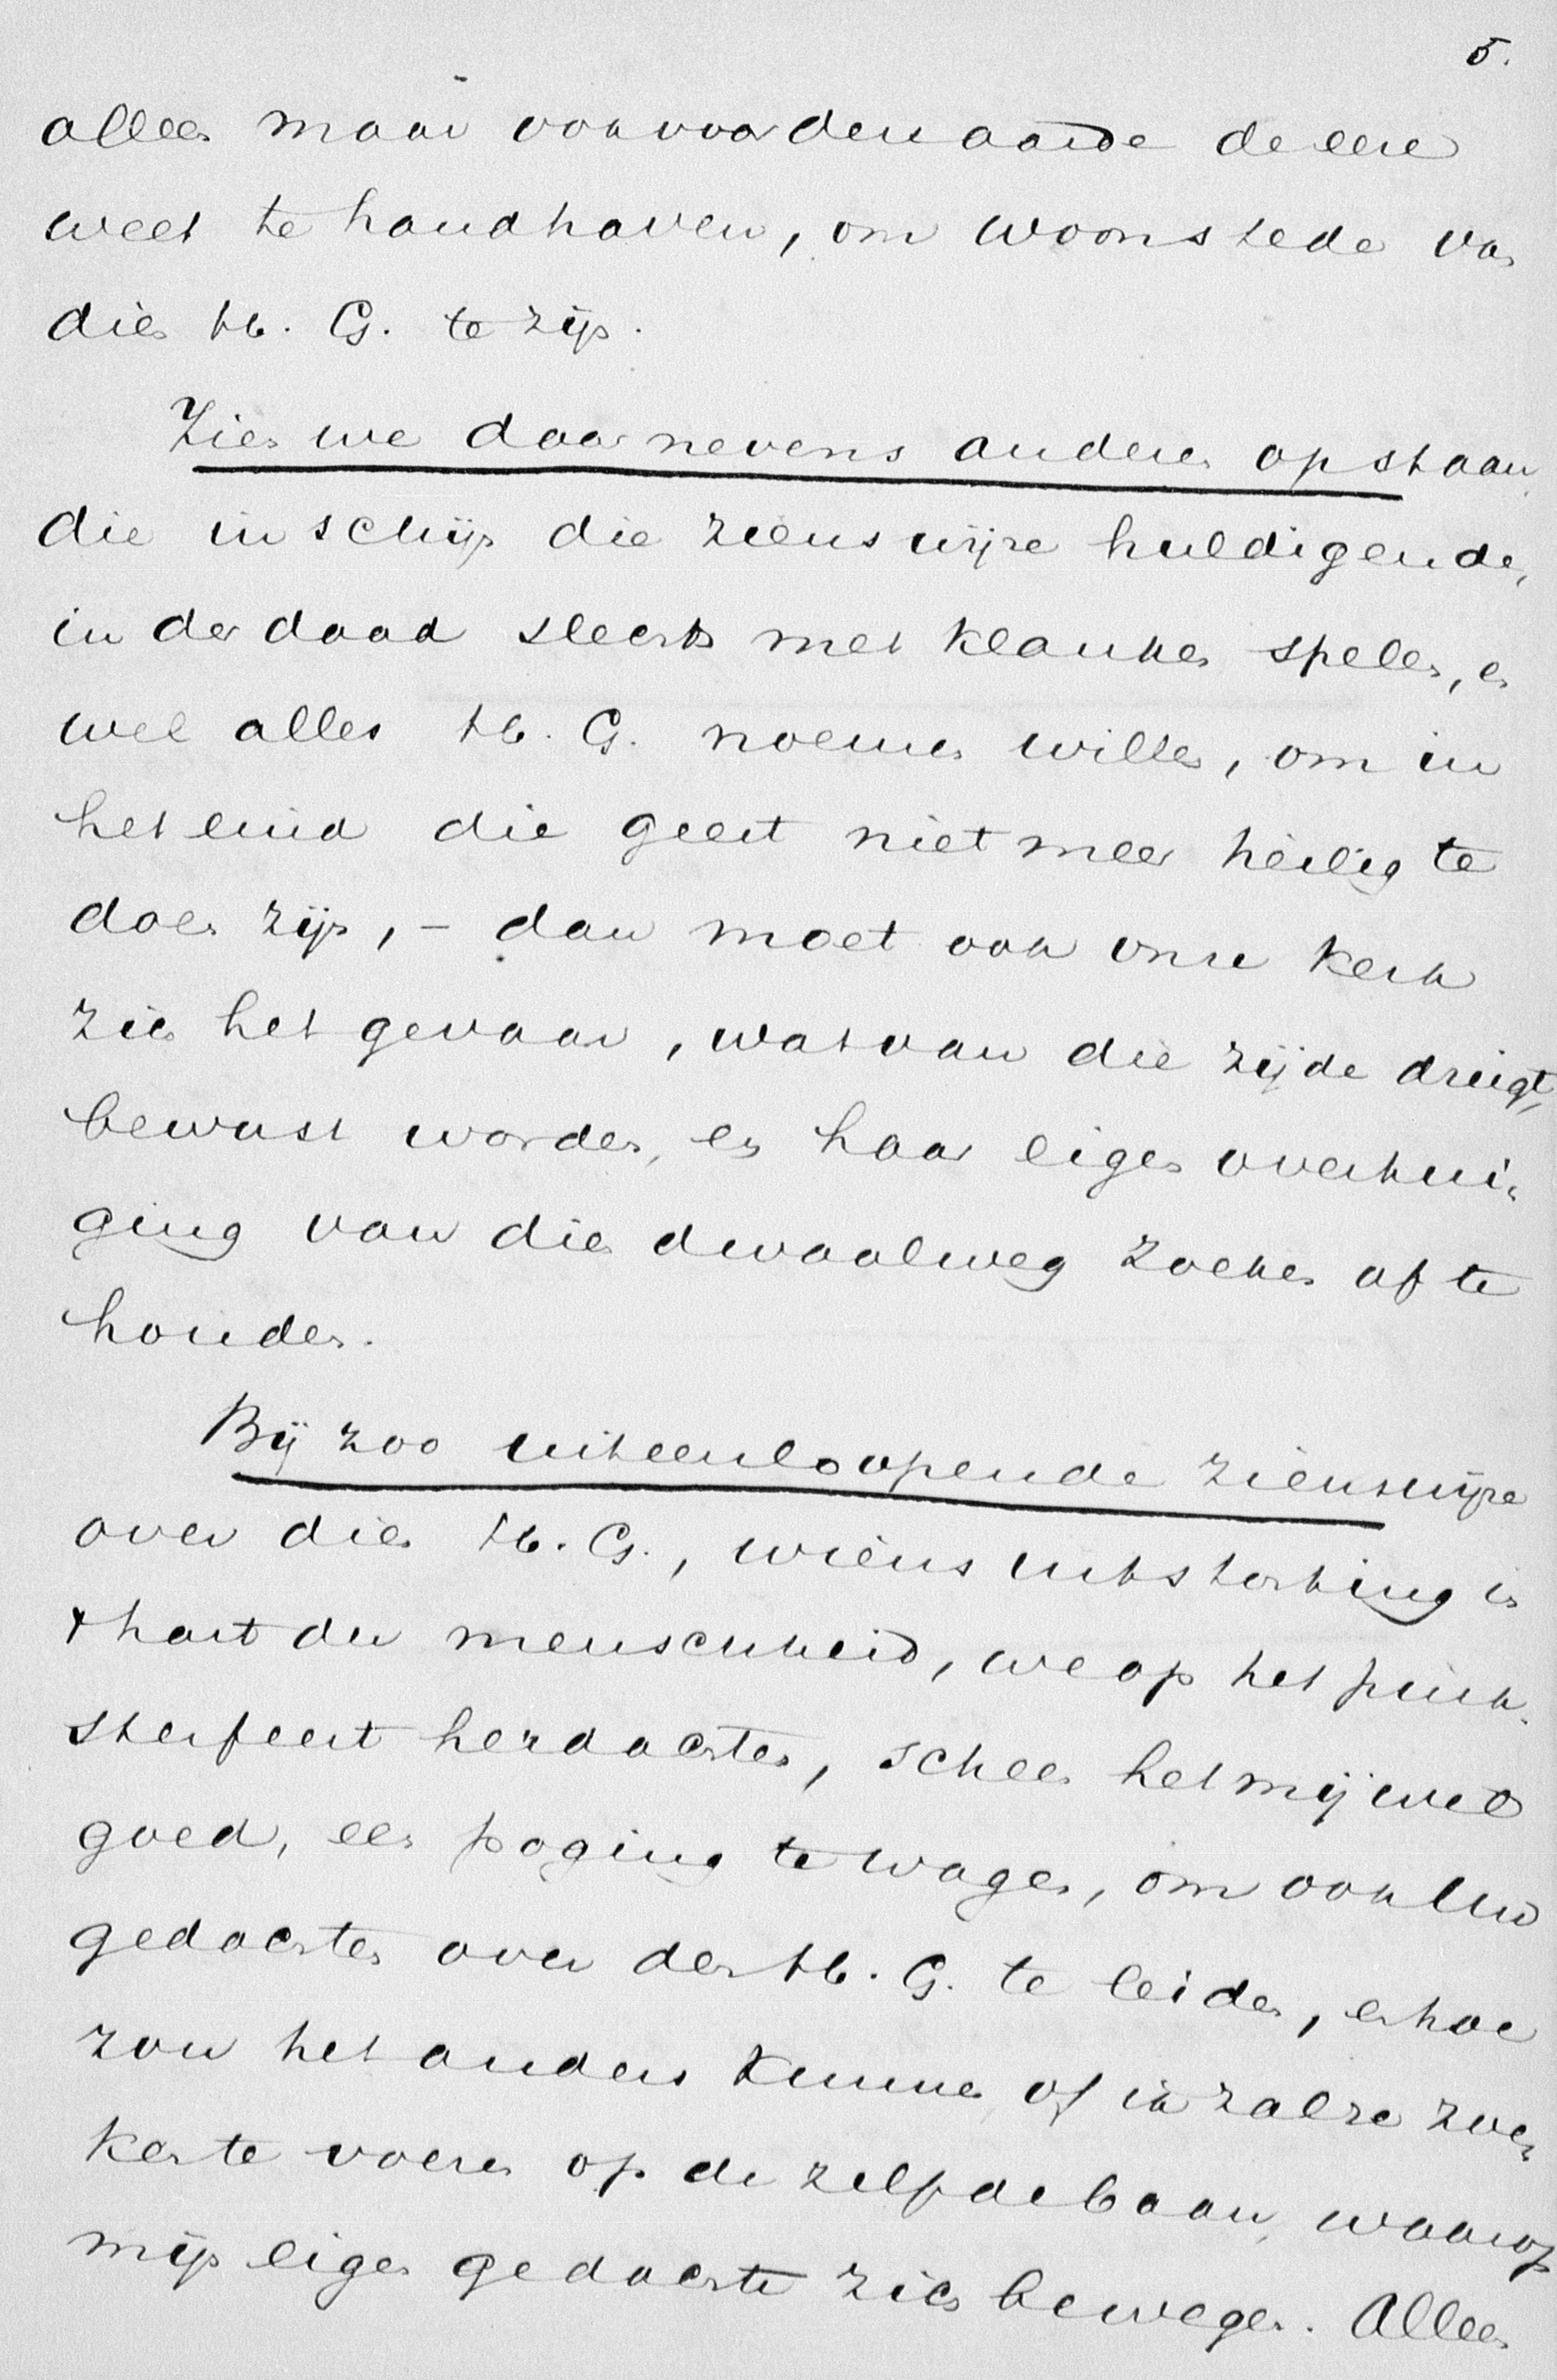 5.
alleen maar ook voor den aarde de eere
weet te handhaven, om woonstede van
dien H. G. te zijn.
Zien we daarnevens anderen opstaan,
die in schijn die zienswijze huldigende,
inderdaad slechts met klanken spelen, en
wel alles H. G. noemen willen, om in
het eind die geest niet meer heilig te
doen zijn, – dan moet ook onze kerk
zich het gevaar, wat van die zijde dreigt,
bewust worden, en haar eigen overtui-
ging van dien dwaalweg zoeken af te
houden.
Bij zoo uiteenloopende zienswijze
over dien H. G., wiens uitstorting in
't hart der menschheid, we op het pink-
sterfeest herdachten, scheen het mij wel
goed, een poging te wagen, om ook Uw
gedachten over den H. G. te leiden, en hoe
zou het anders kunnen, of ik zal ze zoe-
ken te voeren op de zelfde baan, waarop
mijn eigen gedachte zich bewegen. Alleen